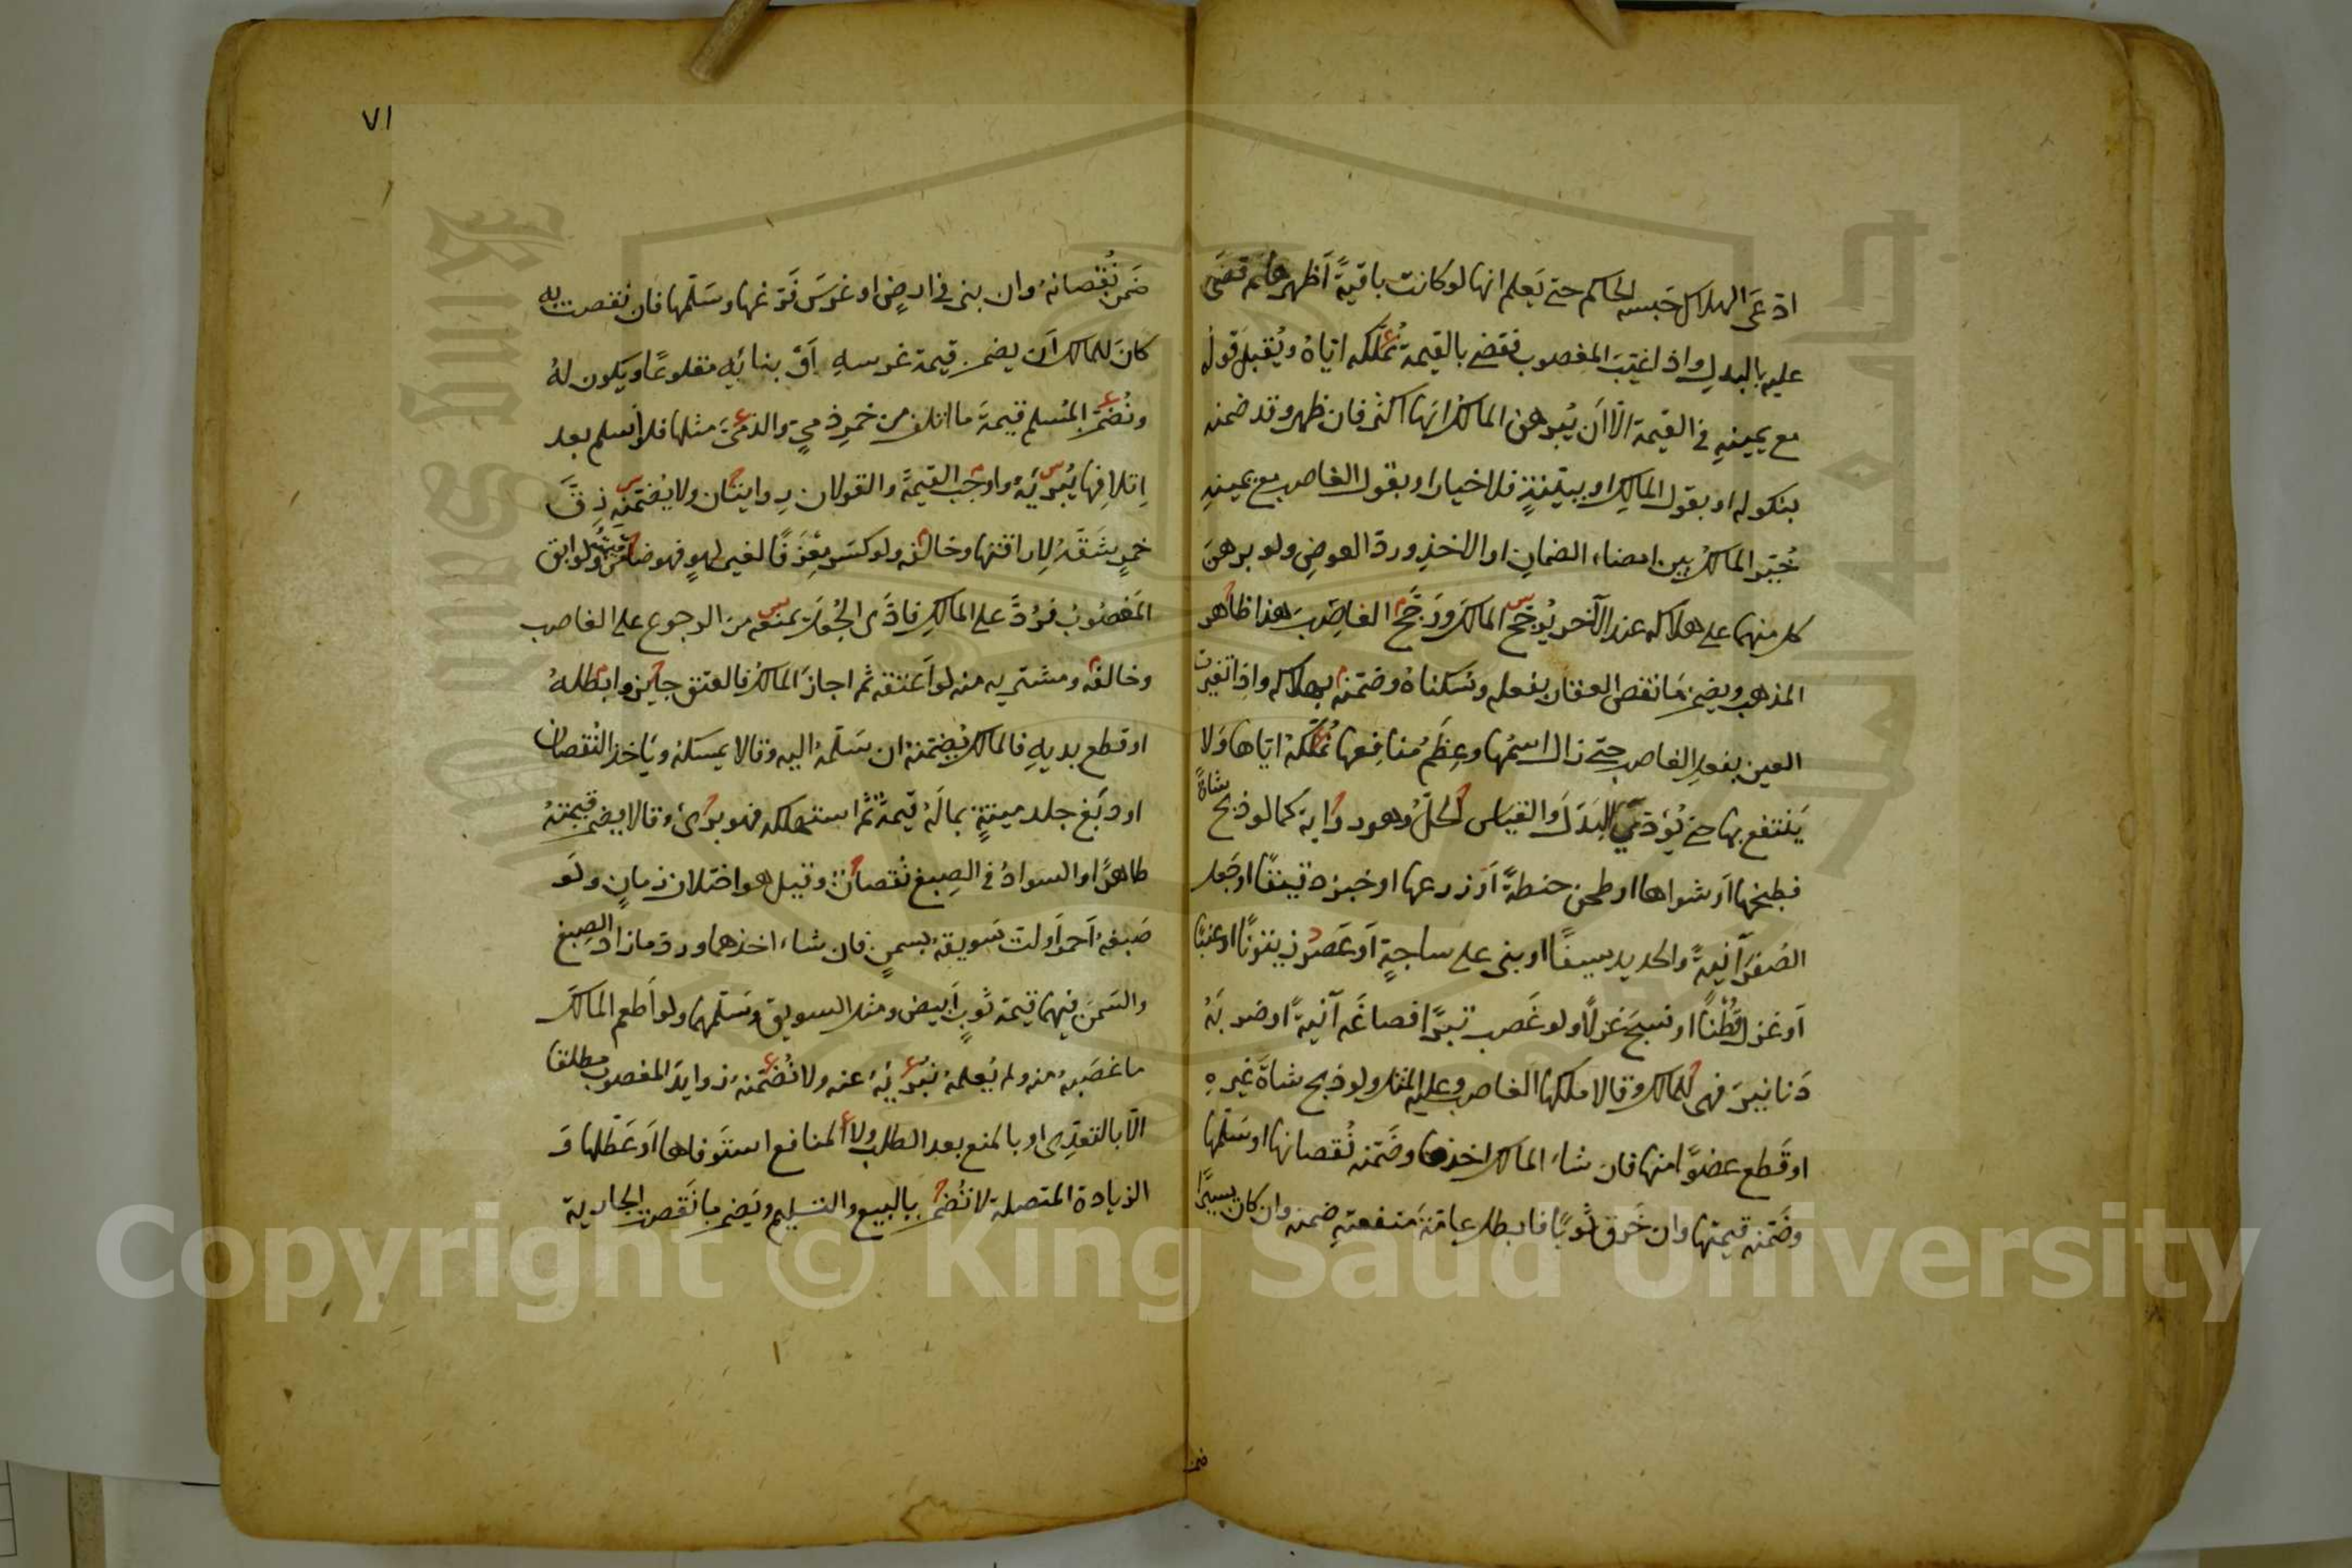 ادّعى الهلاك حبسه الحاكم حتى يَعلم انها لو كانت باقيةً أظهرها ثم قضى
عليه بالبدل واذا غيّب المغصوب فقضى بالقيمة نُملّكه ايّاهُ ويُقبل قوله
مع يمينهِ في القيمة الّا أن يُبرهن المالك انّها اكثر فان ظهر وقد ضمنه
بنكوله او بقول المالك او ببيّنةٍ فلا خيار او بقول الغاصب مع يمينهِ
خُيّر المالكُ بين امضاء الضمانِ او الاخذِ وردّ العوضِ ولو برهنَ
كل منهما على هلاكه عند الآخر يُرجّحُ المالكَ ورَجّحَ الغاصبَ هذا ظاهر
المذهب ويضمن ما نقص العقار بفعله وسكناهُ وضمّنه بهلاكه واذا تغيرت
العين بفعل الغاصب حتى زال اسمُها وعِظَمُ منافِعها نُملّكهُ ايّاها وَلا
يَنتفع بها حتى يُؤدّيَ البَدَلَ والقياس الحلُّ وهو رواية كما لو ذبح شاةً
فطبخها اَو شواها او طحن حنطةً اَو زرعها او خبز دقيقًا او جَعل
الصُفرَ آنيةً والحديد سيفًا او بنى على ساجةٍ اَو عَصَرَ زيتونًا او عنبًا
اَو غزل قُطْنًا او نسجَ غزلًا ولو غَصب تبرًا فصاغَه آنيةً او ضربَهُ
دَنانيرَ فهى للمالك وقالا ملكها الغاصب وعليه المثل ولو ذبح شاةَ غيرهِ
او قَطع عضوًا منها فان شاء المالك اخذها وضَمّنه نُقصانها او سَلّمها
وضَمّنه قيمتها وان خَرق ثوبًا فابطل عامّةَ منفعتهِ ضمنه وان كان يسيرًا
ضمن
٧١
ضَمن نُقصانهُ وان بنى في ارضٍ او غرسَ فَرّغها وسَلّمها فان نقصت به
كانَ للمالك اَن يضمن قيمة غرسهِ اَو بنائِهِ مقلوعًا ويكون لهُ
ونُضمّنُ المُسلم قيمةَ ما اتلف من خمرِ ذميٍّ والذميَّ مثلها فلو اَسلم بعد
اِتلافِها يُبرّئهُ واوجَب القيمةَ والقولان روايتان ولا يُضمّنهِ زِقَّ
خمرٍ شَقّهُ لِاِراقتها وخالفه ولو كسَر مِعْزَفًا لغير لهوٍ فهو ضامن قيمتهُ ولو ابق
المَغصُوبُ فرُدّ على المالكِ فادّى الجُعلَ يمنعه من الرجوع على الغاصب
وخالفه ومشتريه منه لو اَعتقه ثم اجازَ المالكُ فالعتق جايز وابطلهُ
او قطع يديهِ فالمالك يُضمّنهُ ان سَلّمهُ اليه وقالا يمسكهُ وياخذ النُقصان
او دَبَغ جلد ميتةٍ بما لَهُ قيمةٌ ثُمّ استهلكه فهو برئ وقالا يضمن قيمتهُ
طاهرًا والسوادُ في الصِبغ نُقصانٌ وقيل هو اختلاف زمانٍ ولَو
صَبغهُ اَحمر اَو لتّ سَويقهُ بسمنٍ فان شاء اخذهما وردّ ما زاد الصِبغ
والسَمنُ فيهما قيمة ثوبٍ اَبيض ومثل السويق وسَلّمهما ولو اَطعم المَالكَ
ما غصَبهُ منه ولم يُعلمهُ نُبرّئهُ عنه ولا نُضمّنهُ زوايدَ المغصوب مطلقا
الّا بالتعدّى او بالمنع بعد الطلب ولا المنافع استوفاها اَو عَطّلها وَ
الزيادة المتصلة لا تُضمن بالبيع والتسليم ويَضمن ما نَقصت الجارية
Copyright © King Saud University